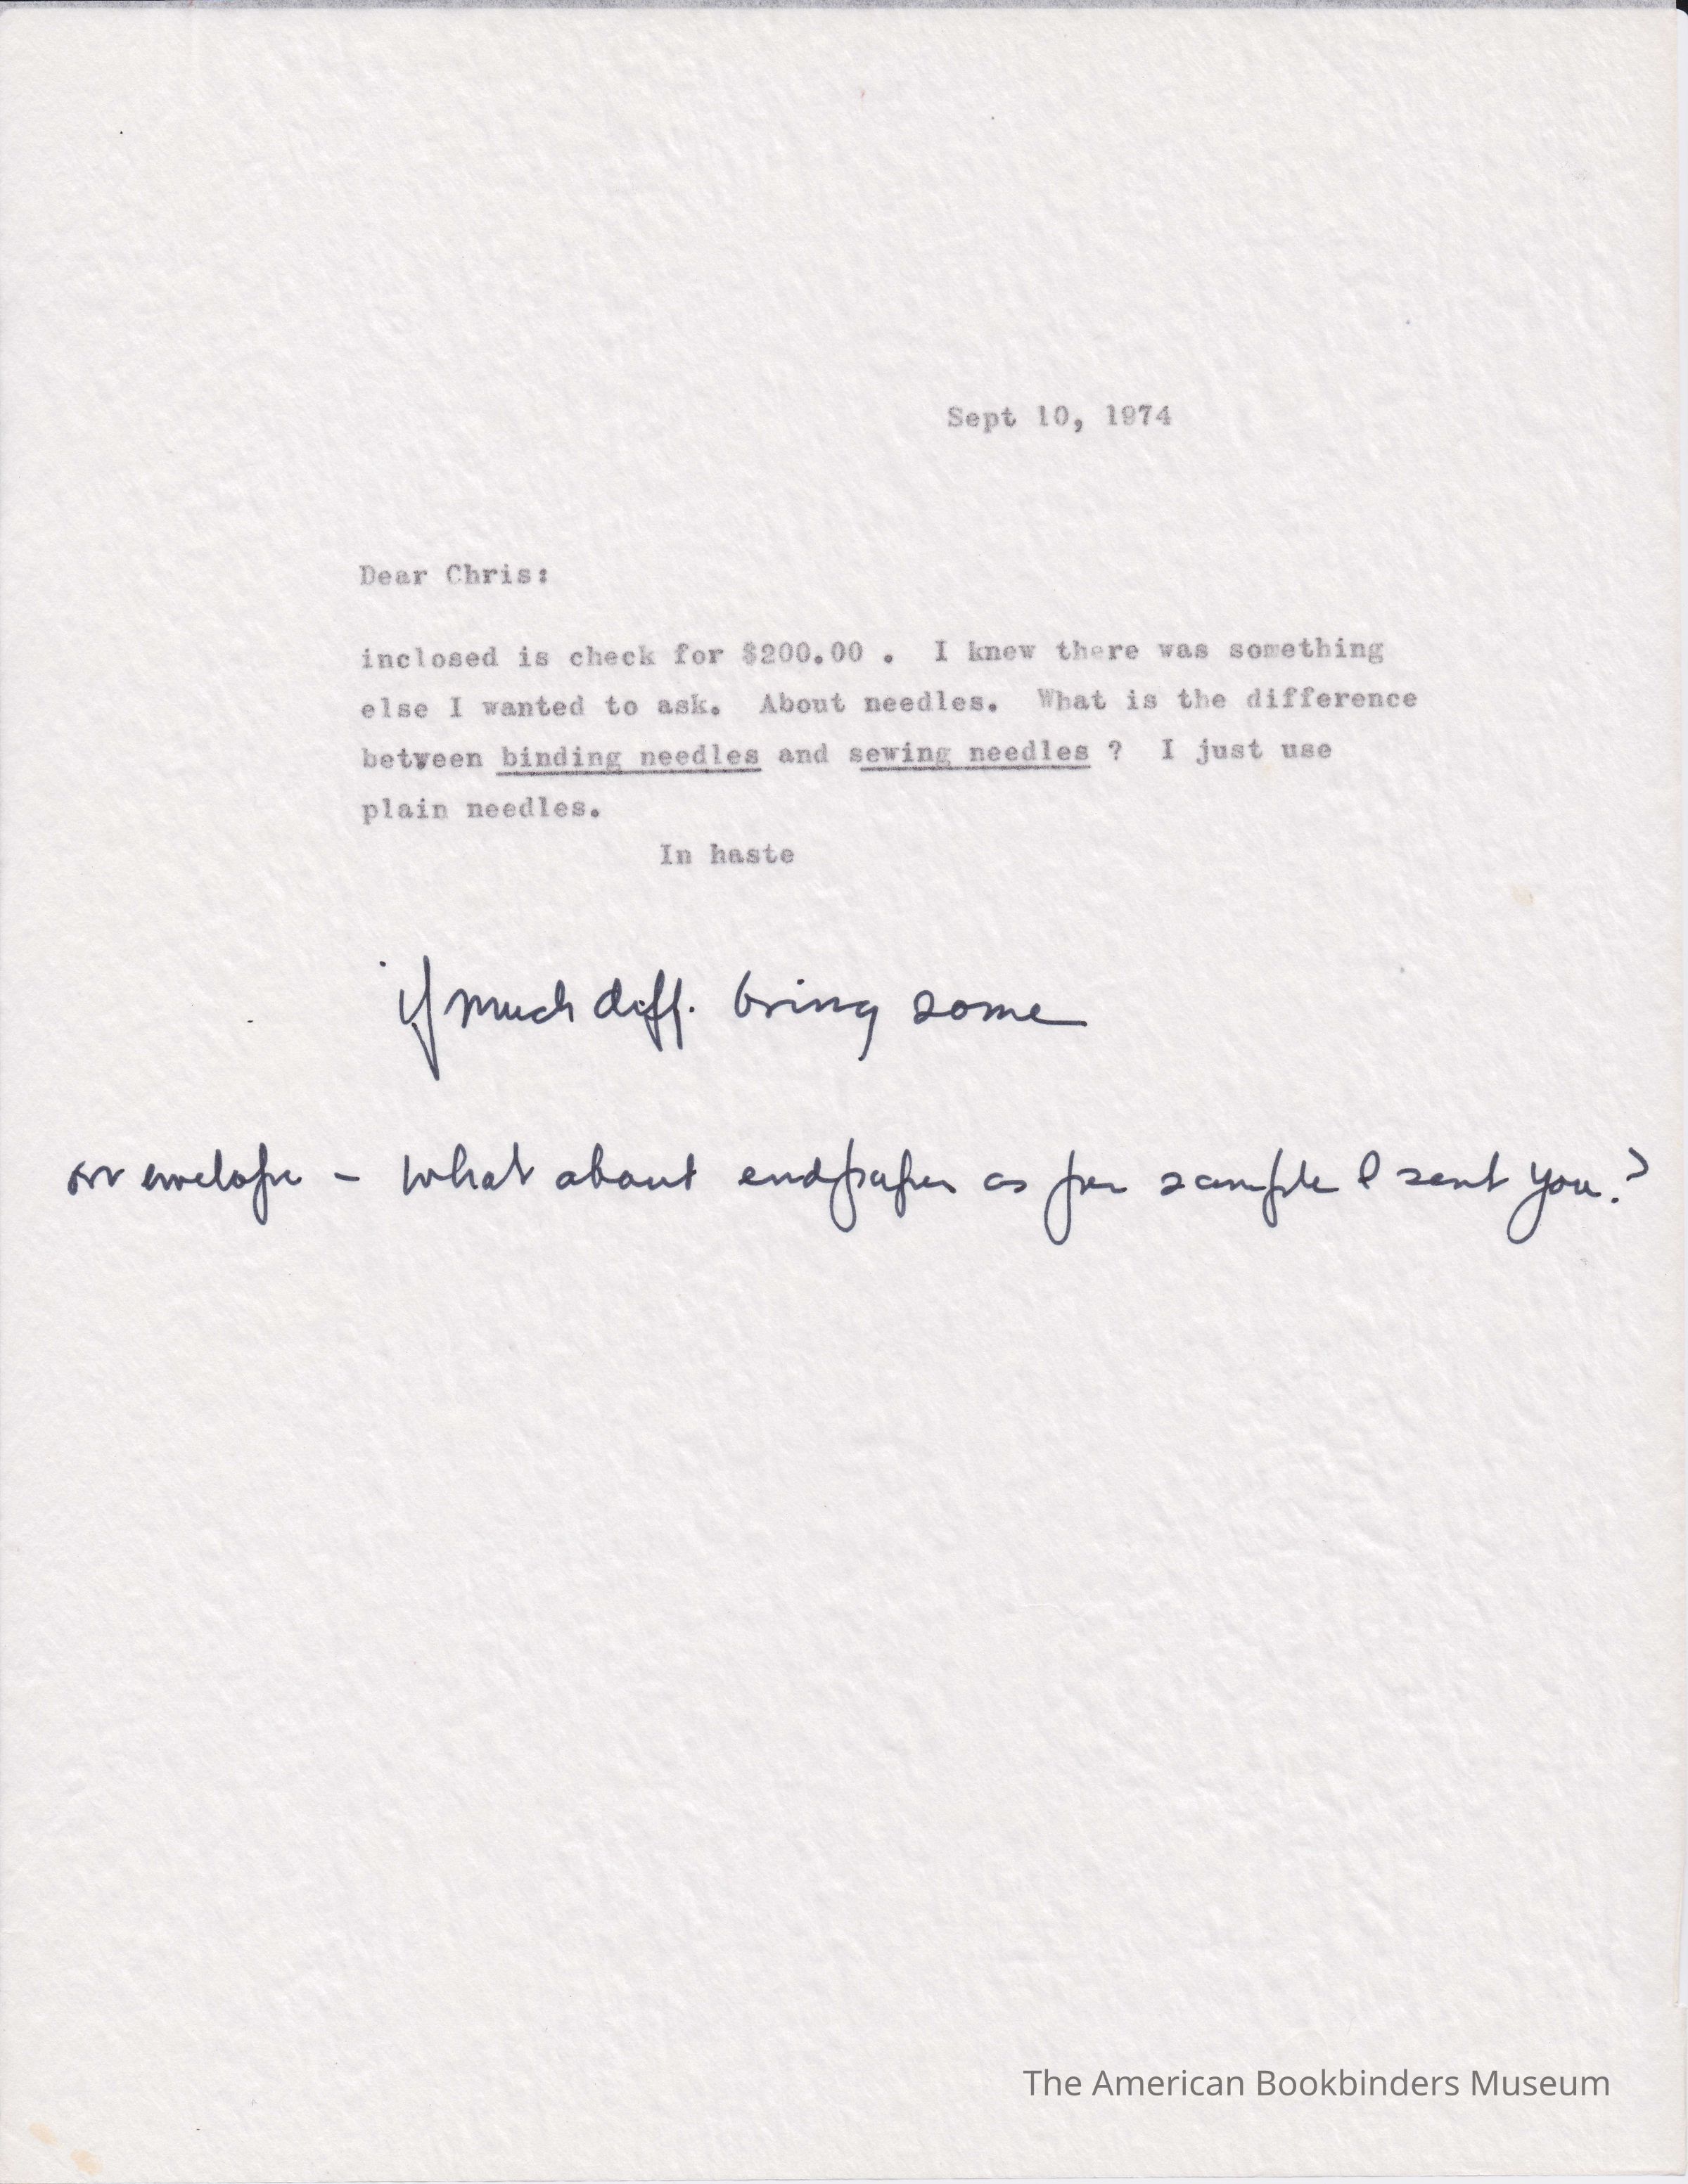 Sept 10, 1974
Dear Chris:
inclosed is check for $200.00 . I knew there was something
else I wanted to ask. About needles. What is the difference
between binding needles and sewing needles ? I just use
plain needles.
In haste
if much diff. bring some
on envelope - What about endpaper as per sample I sent you.?
The American Bookbinders Museum